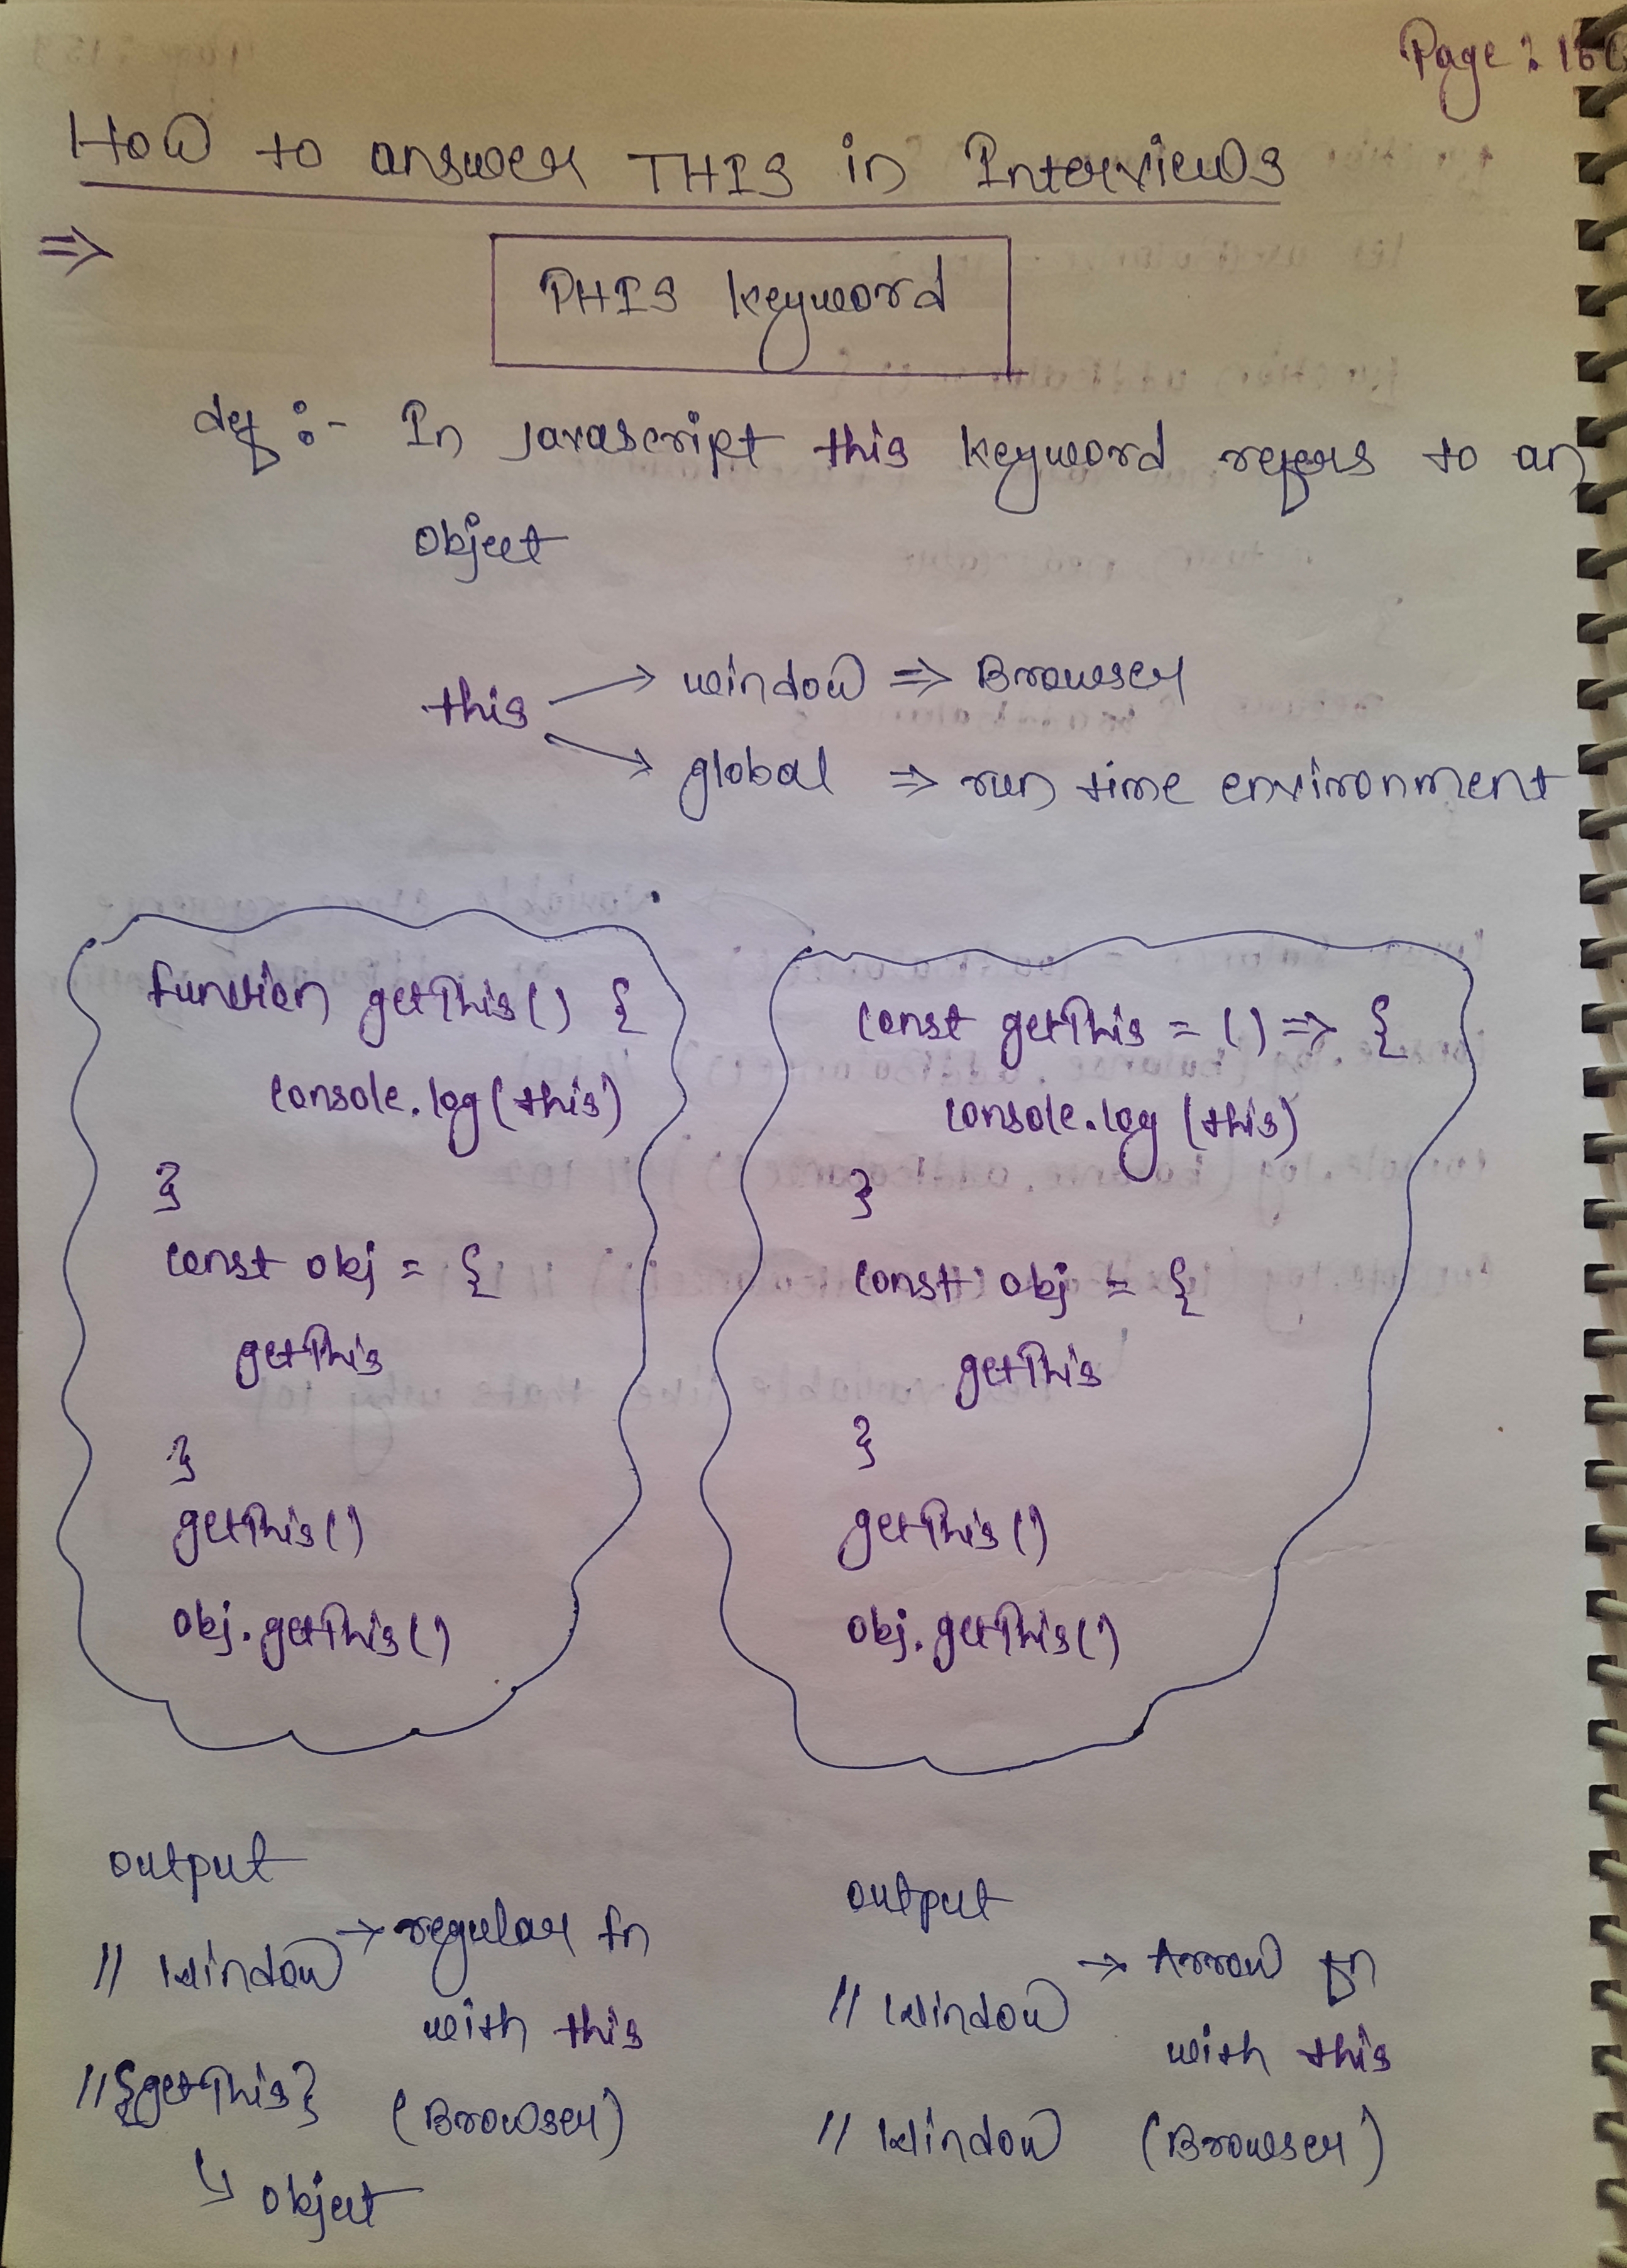 Page :
How to answer THIS in Interviews
⇒
THIS keyword
def :- In javascript this keyword refers to an
object
this → window ⇒ Browser
→ global ⇒ run time environment
function getThis() {
console.log(this)
}
const obj = {
getThis
}
getThis()
obj.getThis()
const getThis = () => {
console.log(this)
}
const obj = {
getThis
}
getThis()
obj.getThis()
output
// window → regular fn
with this
// {getThis} (Browser)
↳ object
output
// window → Arrow fn
with this
// window (Browser)